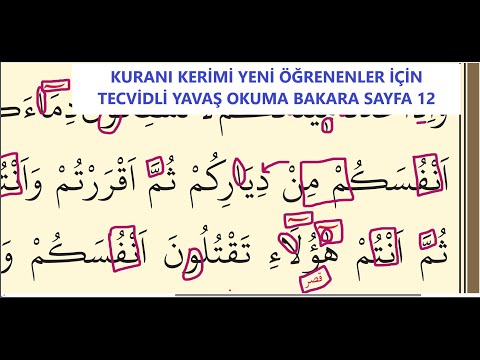 KURANI KERİMİ YENİ ÖĞRENENLER İÇİN
TECVİDLİ YAVAŞ OKUMA BAKARA SAYFA 12
دِمَٓاءَكُ
اَنْفُسَكُمْ مِنْ دِيَارِكُمْ ثُمَّ اَقْرَرْتُمْ وَاَنْتُ
ثُمَّ اَنْتُمْ هٰٓؤُلَٓاءِ تَقْتُلُونَ اَنْفُسَكُمْ وَ
قصر